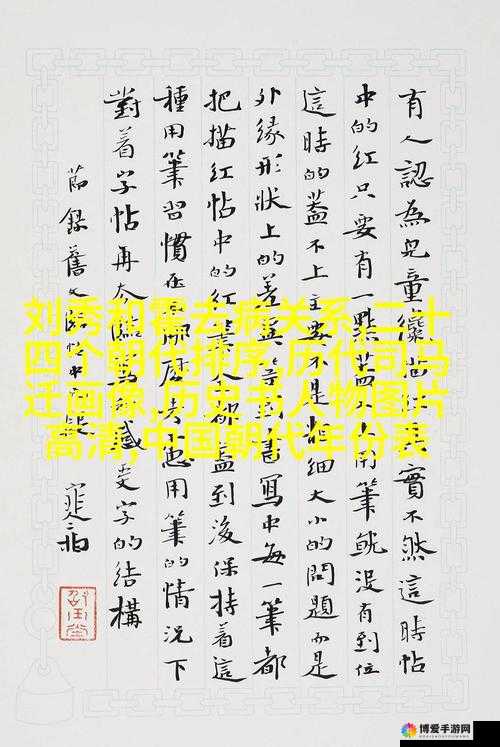 有人認為兒童描實不然這時帖
中的紅只要有一點蓋用筆就沒有到位
這時的蓋不上主要不是粗細大小的問題而是
外緣形狀上的差異書寫中每一筆都
把描紅帖中的紅都蓋到後保持着這
種用筆習慣用筆的情況下
對着字帖再受字的結構
節錄舊文
刘秀和霍去病关系,二十
四个朝代排序,历代司马
迁画像,历史书人物图片
高清,中国朝代年份表
博爱手游网